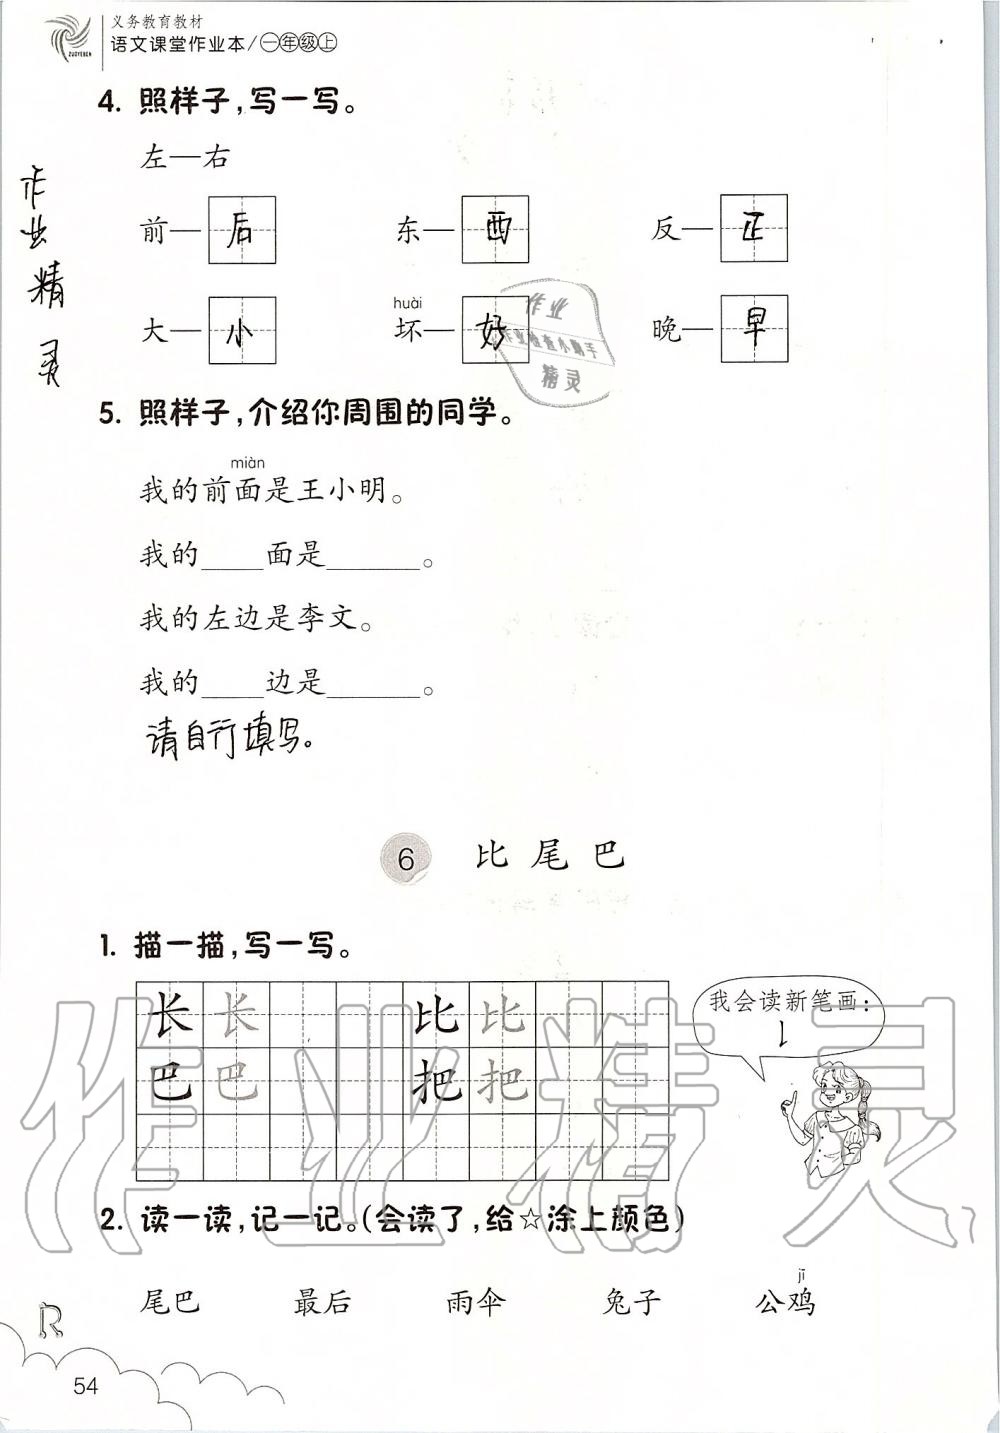 ZUOYEBEN
义务教育教材
语文课堂作业本/一年级上
4. 照样子,写一写。
左—右
前—后 东—西 反—正
huài
大—小 坏—好 晚—早
作业
作业检查小助手
精灵
作业精灵
5. 照样子,介绍你周围的同学。
miàn
我的前面是王小明。
我的____面是______。
我的左边是李文。
我的____边是______。
请自行填写。
6 比尾巴
1. 描一描,写一写。
长 长 比 比
巴 巴 把 把
我会读新笔画:
㇄
作业精灵
2. 读一读,记一记。(会读了,给☆涂上颜色)
jī
尾巴 最后 雨伞 兔子 公鸡
R
54